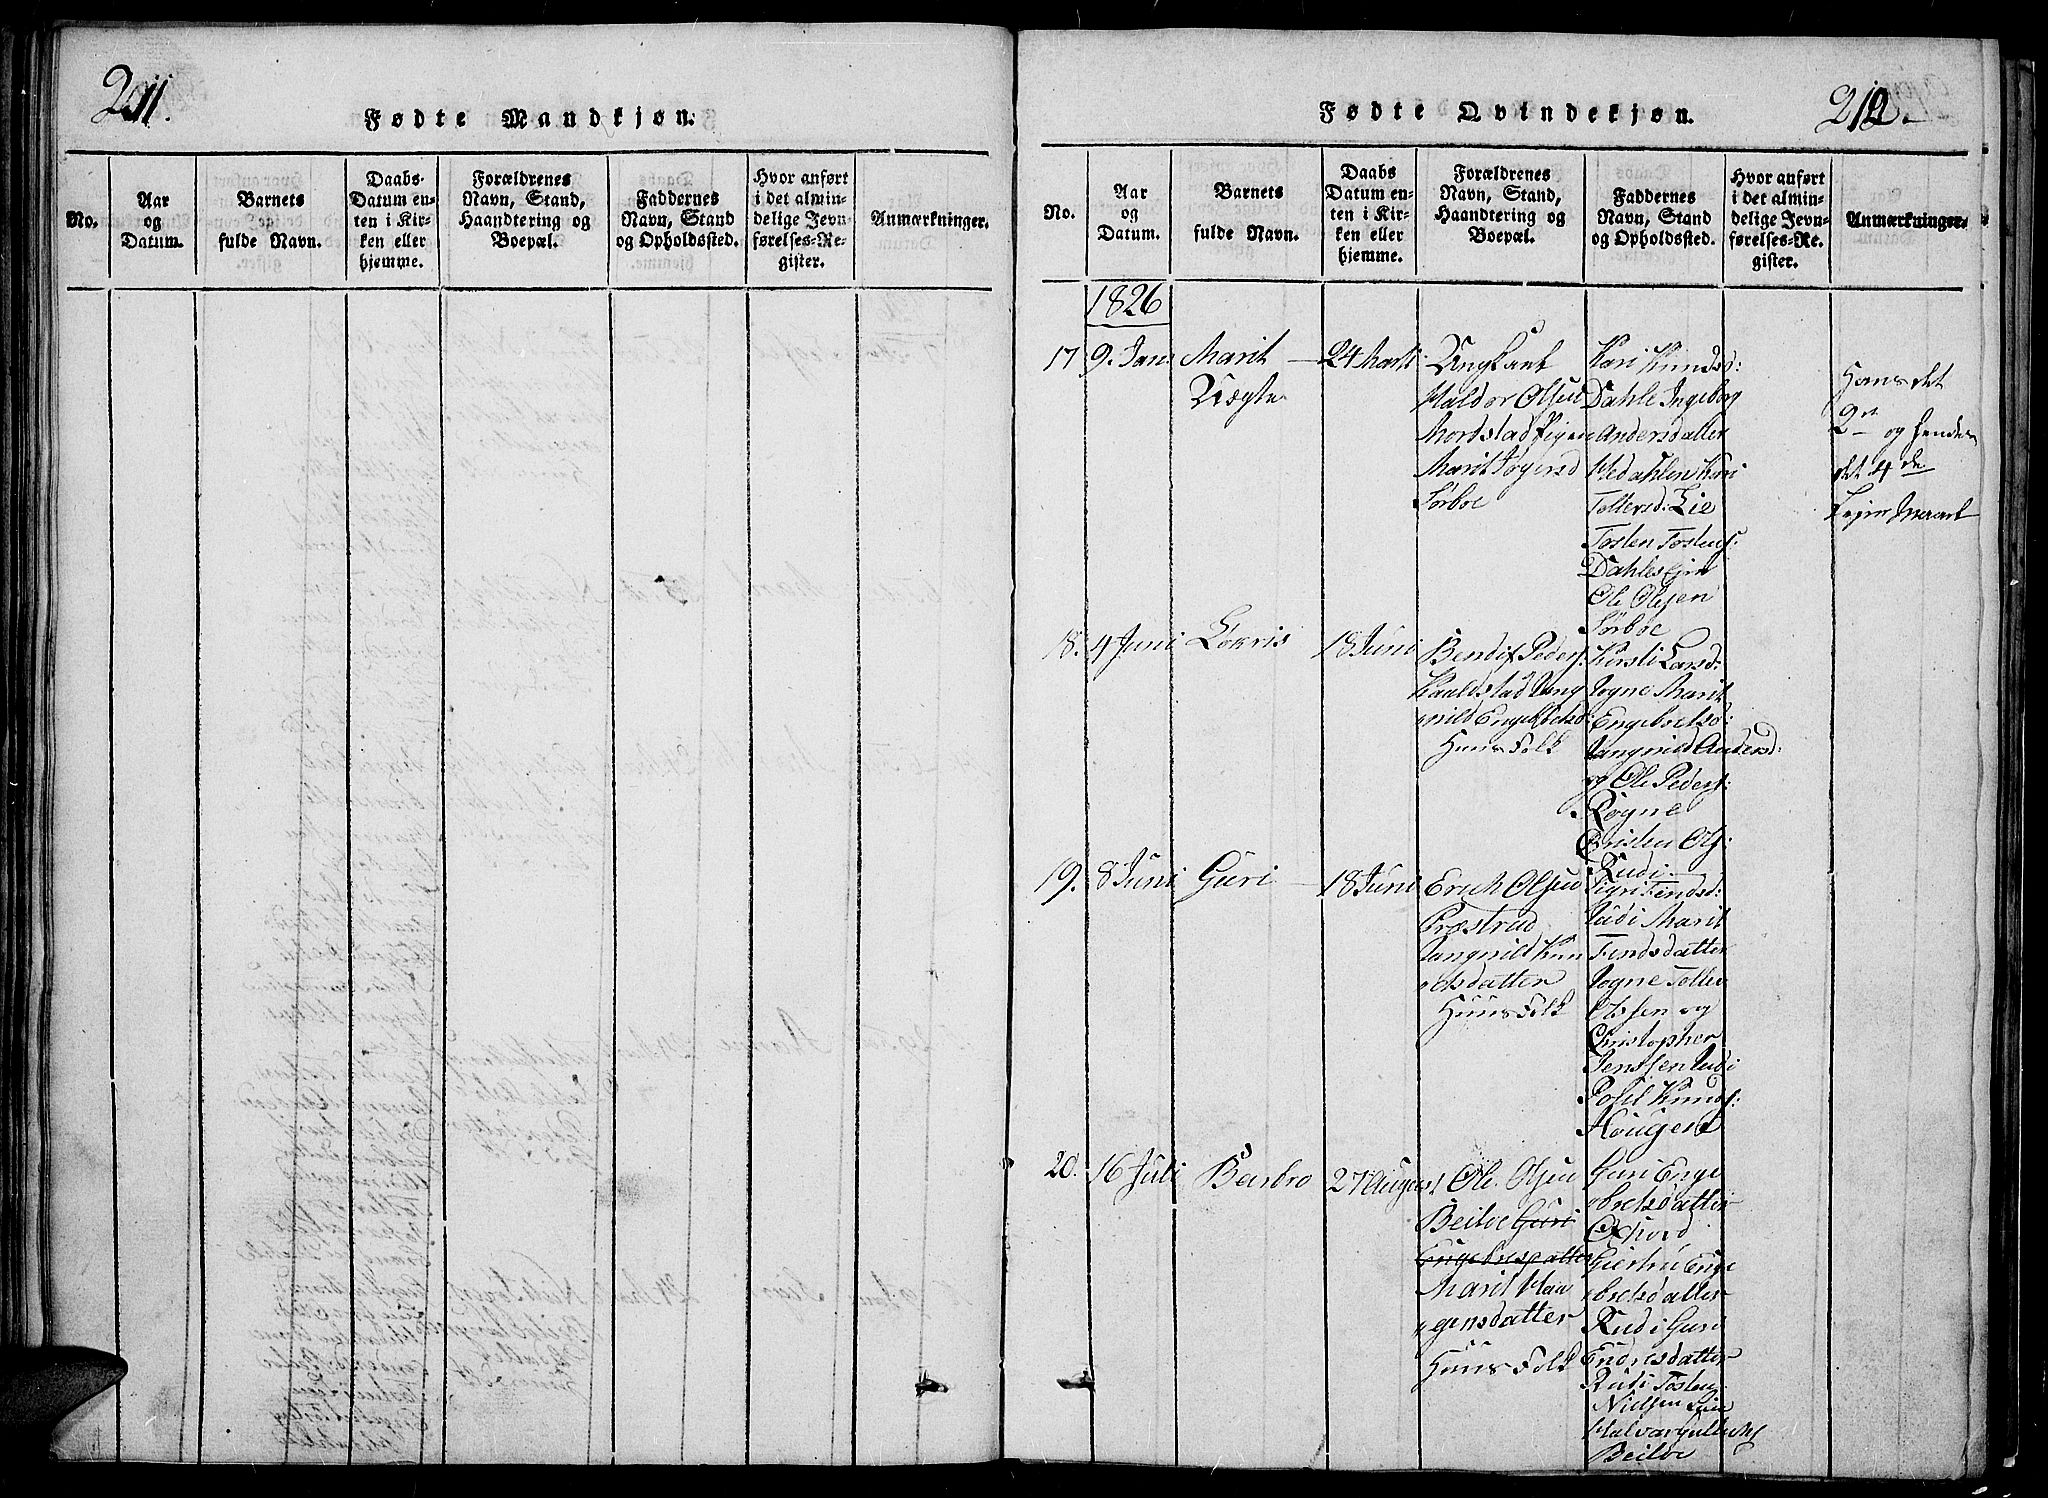 211.
Fødte Mandkjøn.
No.
Aar
og
Datum.
Barnets
fulde Navn.
Daabs-
Datum en-
ten i Kir-
ken eller
hjemme.
Forældrenes
Navn, Stand,
Haandtering og
Boepæl.
Faddernes
Navn, Stand
og Opholdssted.
Hvor anført
i det almin-
delige Jevn-
førelses-Re-
gister.
Anmærkninger.
212.
Fødte Qvindekjøn.
No.
Aar
og
Datum.
Barnets
fulde Navn.
Daabs
Datum en-
ten i Kir-
ken eller
hjemme.
Forældrenes
Navn, Stand,
Haandtering og
Boepæl.
Faddernes
Navn, Stand
og Opholdssted.
Hvor anført
i det almin-
delige Jevn-
førelses-Re-
gister.
Anmærkninger.
1826
17
9. Jan
Marit
Uægte
24 Marts
Ungkarl
Haldor Olsen
Mordstad Pigen
Marit
Sørboe
Kari Knuds:
Dahle Ingeborg
Andersdatter
Kari
Lie
Tosten Tostens:
Ole Olsen
Sørboe
Hans det
2et og hendes
det 4de
Lejermaal
18.
4 Juni
18 Juni
Peders:
Engelbretsd:
Huus Folk
Kirsti Larsd:
Rogne Marit
Engebretsd:
Rangnild Andersd:
og Ole Peders:
Rogne
Cristen Ols:
Rudi
19.
8 Juni
Guri
18 Juni
Erich Olsen
Præstrud
Rangnild Knu
dsdatter
Huus Folk
Sigri Findsd:
Rudi Marit
Findsdatter
Rogne
Olssen og
Christopher
Jenssen Rudi
Knuds:
Hougen
20.
16 Juli
Barbro
27 August
Ole Olsen
Beitoe Guri
Engebretsdatter
Marit Haa
gensdatter
Huus Folk
Guri Enge
bretsdatter
Giertru Enge
bretsdatter
Rudi Guri
Endresdatter
Rudi Tosten
Nielsen
Halvor
Beitoe